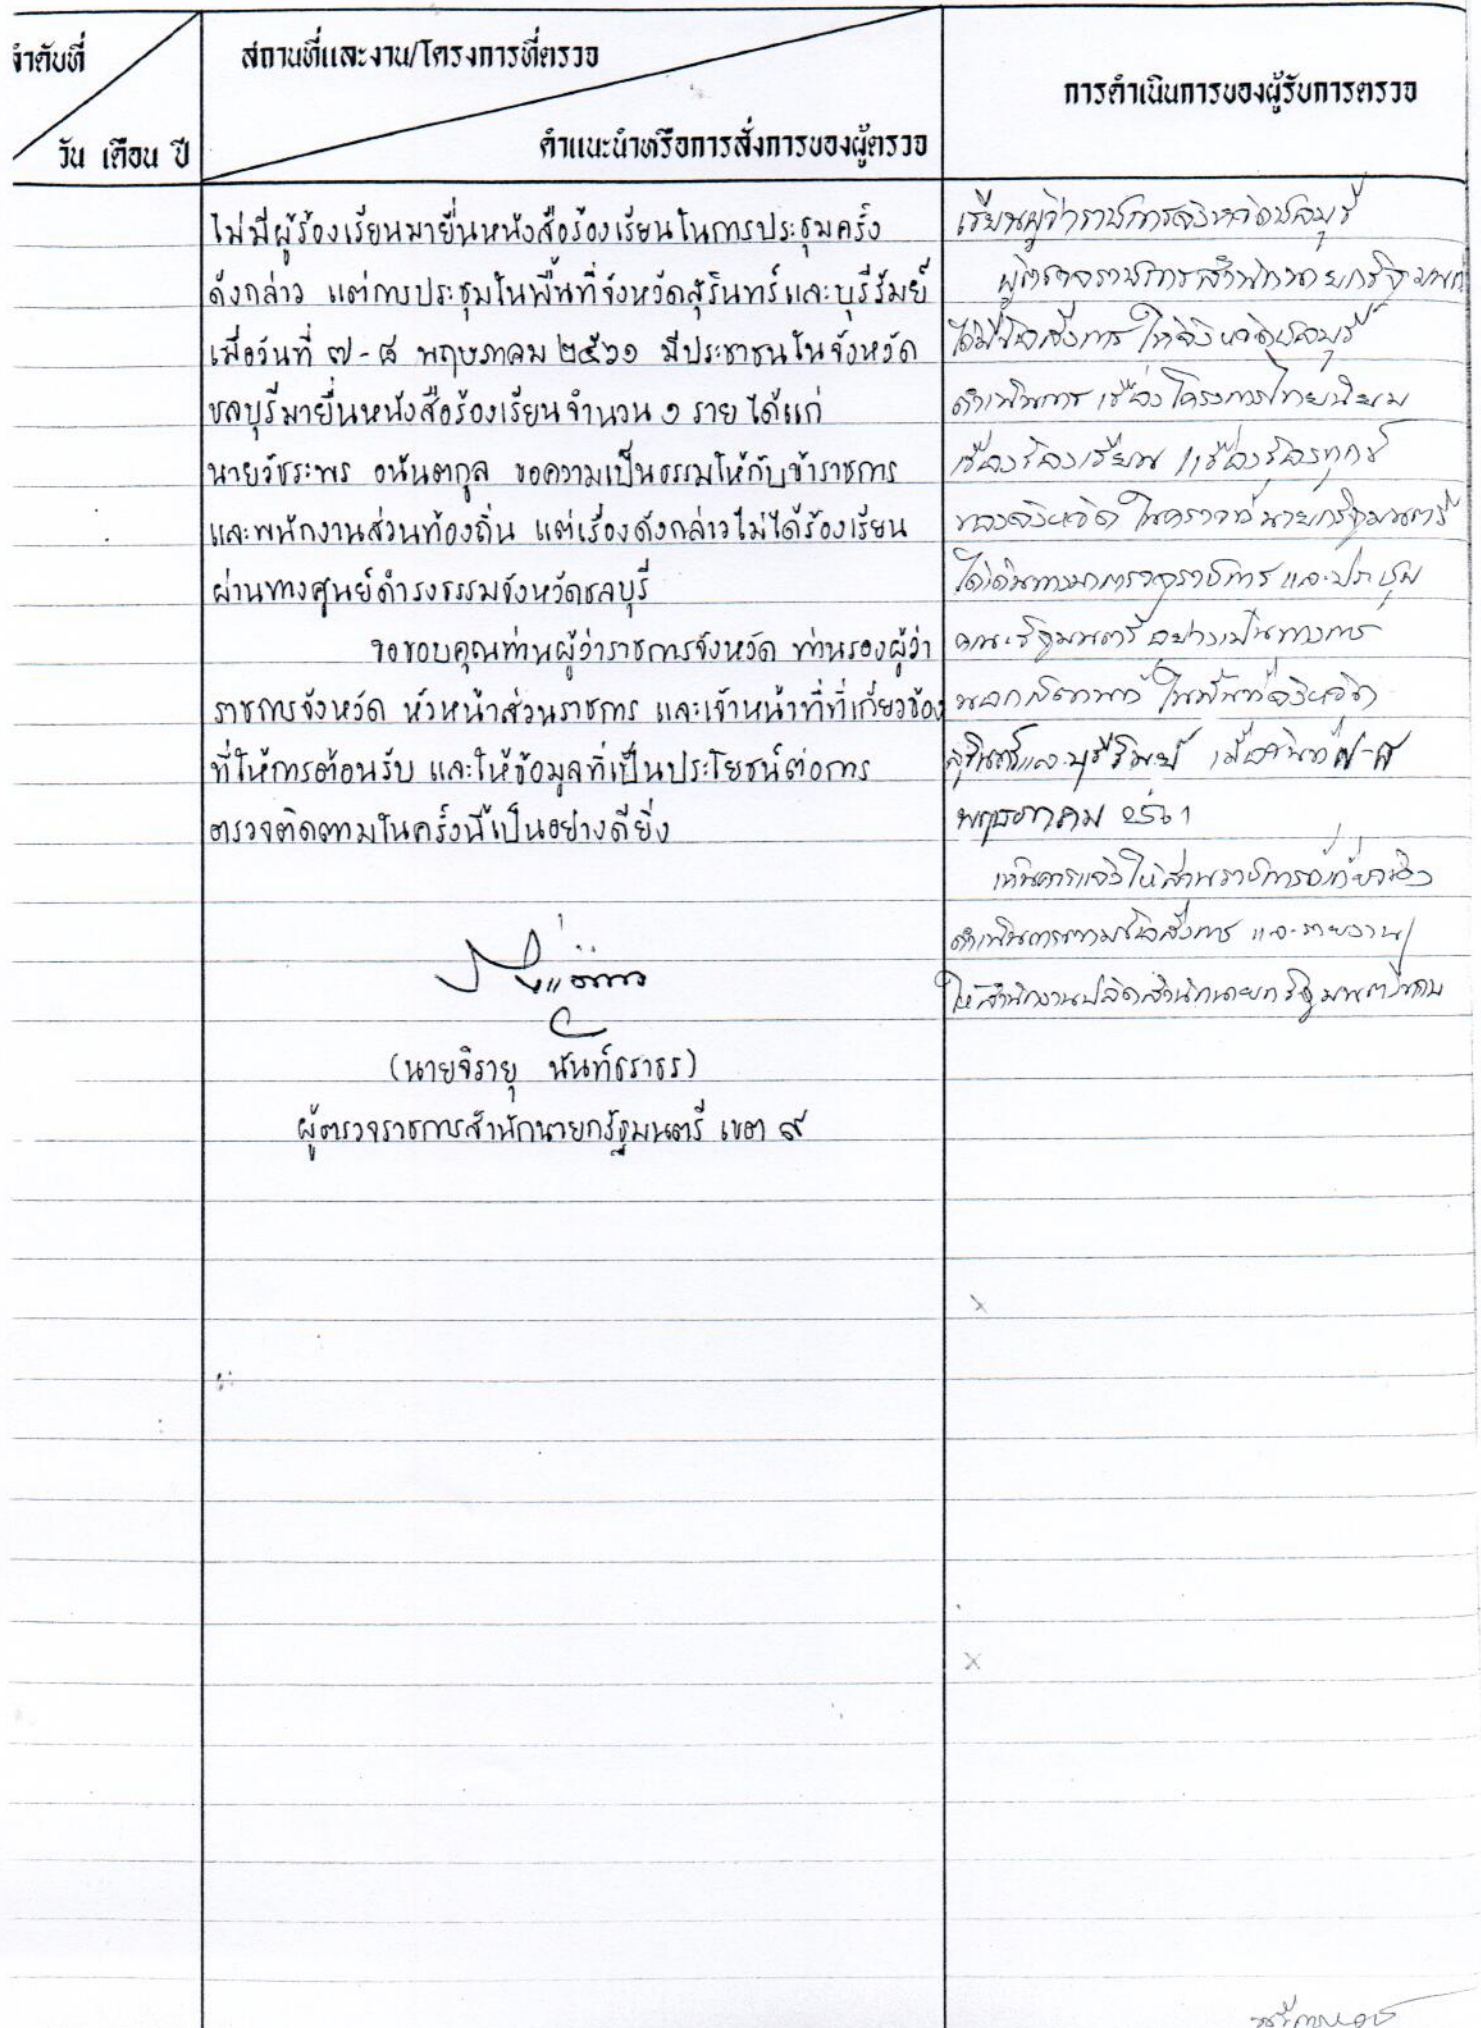 ลำดับที่
วัน เดือน ปี
สถานที่และงาน/โครงการที่ตรวจ
คำแนะนำหรือการสั่งการของผู้ตรวจ
การดำเนินการของผู้รับการตรวจ
ไม่มีผู้ร้องเรียนมายื่นหนังสือร้องเรียนในการประชุมครั้ง
ดังกล่าว แต่การประชุมในพื้นที่จังหวัดสุรินทร์และบุรีรัมย์
เมื่อวันที่ ๗-๘ พฤษภาคม ๒๕๖๑ มีประชาชนในจังหวัด
ชลบุรีมายื่นหนังสือร้องเรียนจำนวน ๑ ราย ได้แก่
นายวัชระพร อนันตกูล ขอความเป็นธรรมให้กับข้าราชการ
และพนักงานส่วนท้องถิ่น แต่เรื่องดังกล่าวไม่ได้ร้องเรียน
ผ่านทางศูนย์ดำรงธรรมจังหวัดชลบุรี
ขอขอบคุณท่านผู้ว่าราชการจังหวัด ท่านรองผู้ว่า
ราชการจังหวัด หัวหน้าส่วนราชการ และเจ้าหน้าที่ที่เกี่ยวข้อง
ที่ให้การต้อนรับ และให้ข้อมูลที่เป็นประโยชน์ต่อการ
ตรวจติดตามในครั้งนี้เป็นอย่างดียิ่ง
(นายจิรายุ นันท์ธราธร)
ผู้ตรวจราชการสำนักนายกรัฐมนตรี เขต ๙
เรียนผู้ว่าราชการจังหวัดชลบุรี
ผู้ตรวจราชการสำนักนายกรัฐมนตรี
ได้มีข้อสั่งการ ให้จังหวัดชลบุรี
ดำเนินการ เรื่อง โครงการไทยนิยม
เรื่องร้องเรียน เรื่องร้องทุกข์
ของจังหวัด ในคราวที่นายกรัฐมนตรี
ได้เดินทางมาตรวจราชการ และประชุม
คณะรัฐมนตรี อย่างเป็นทางการ
นอกสถานที่ ในพื้นที่จังหวัด
สุรินทร์และบุรีรัมย์ เมื่อวันที่ ๗-๘
พฤษภาคม ๒๕๖๑
เห็นควรแจ้งให้ส่วนราชการที่เกี่ยวข้อง
ดำเนินการตามข้อสั่งการ และรายงาน
ให้สำนักงานปลัดสำนักนายกรัฐมนตรีทราบ